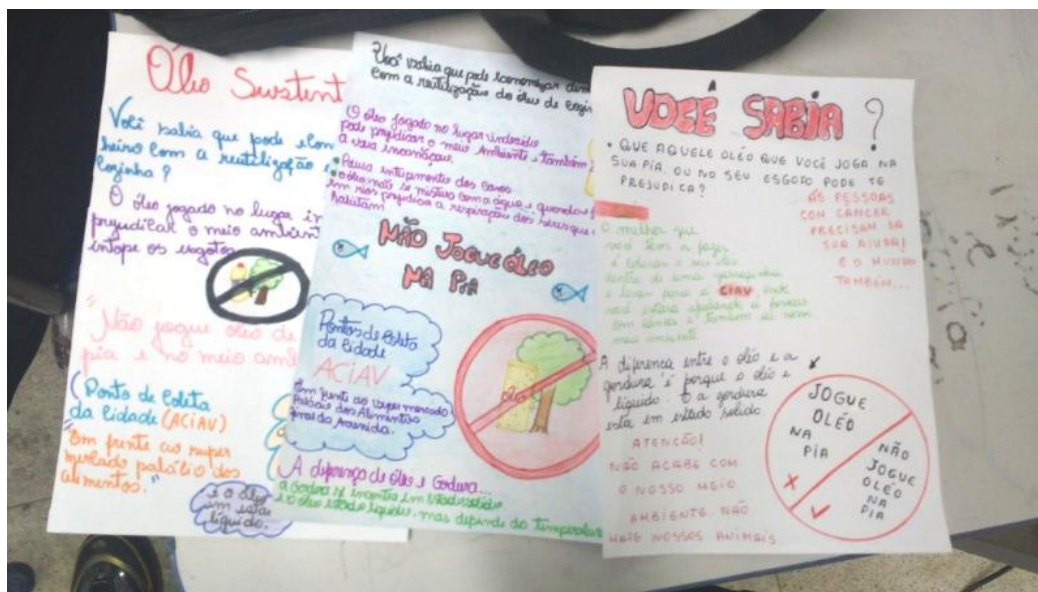 Óleo Sustent
Você sabia que pode econ
heiro com a reutilização
cozinha ?
O óleo jogado no lugar in
prejudicar o meio ambient
entope os esgotos
"Não jogue óleo de
pia e no meio amb
(Ponto de coleta
da cidade (ACiAV)
"Em frente ao super
mercado palácio dos
alimentos."
e o óleo
em estar
líquido.
Você sabia que pode economizar din
com a reutilização do óleo de cozin
O óleo jogado no lugar indevido
pode prejudicar o meio Ambiente e também
a vasa
• Causa entupimento dos canos
• o óleo não se mistura com a água e quando
em rios prejudica a respiração dos seres que
habitam
NÃO JOGUE ÓLEO
NA PIA
Pontos de coleta
da cidade
ACiAV
Em frente ao supermercado
Palácio dos Alimentos
final da Avenida.
óleo
A diferença de óleo e Gordura...
a Gordura se encontra em estado solido
e o óleo estado liquido, mas depende da temperatura
VOCÊ SABIA ?
• QUE AQUELE OLÉO QUE VOCÊ JOGA NA
SUA PIA OU NO SEU ESGOTO PODE TE
PREJUDICA?
ÁS PESSOAS
CON CANCER
PRECISAM DA
SUA AJUDA!
E O MUNDO
TAMBÉM...
O melhor que
você tem a fazer
é colocar o seu oléo
dentro de uma garrafinha
e levar para a CIAV onde
você estara ajudando a pessoas
com cancer e tambem ao
meio ambiente
A diferença entre o oléo e a
gordura é porque o oléo e
liquido. E a gordura
esta em estado solido
ATENÇÃO!
NÃO ACABE COM
O NOSSO MEIO
AMBIENTE NÃO
MATE NOSSOS ANIMAIS
JOGUE
OLÉO
NA
PIA
NÃO
JOGUE
OLEO
NA
PIA